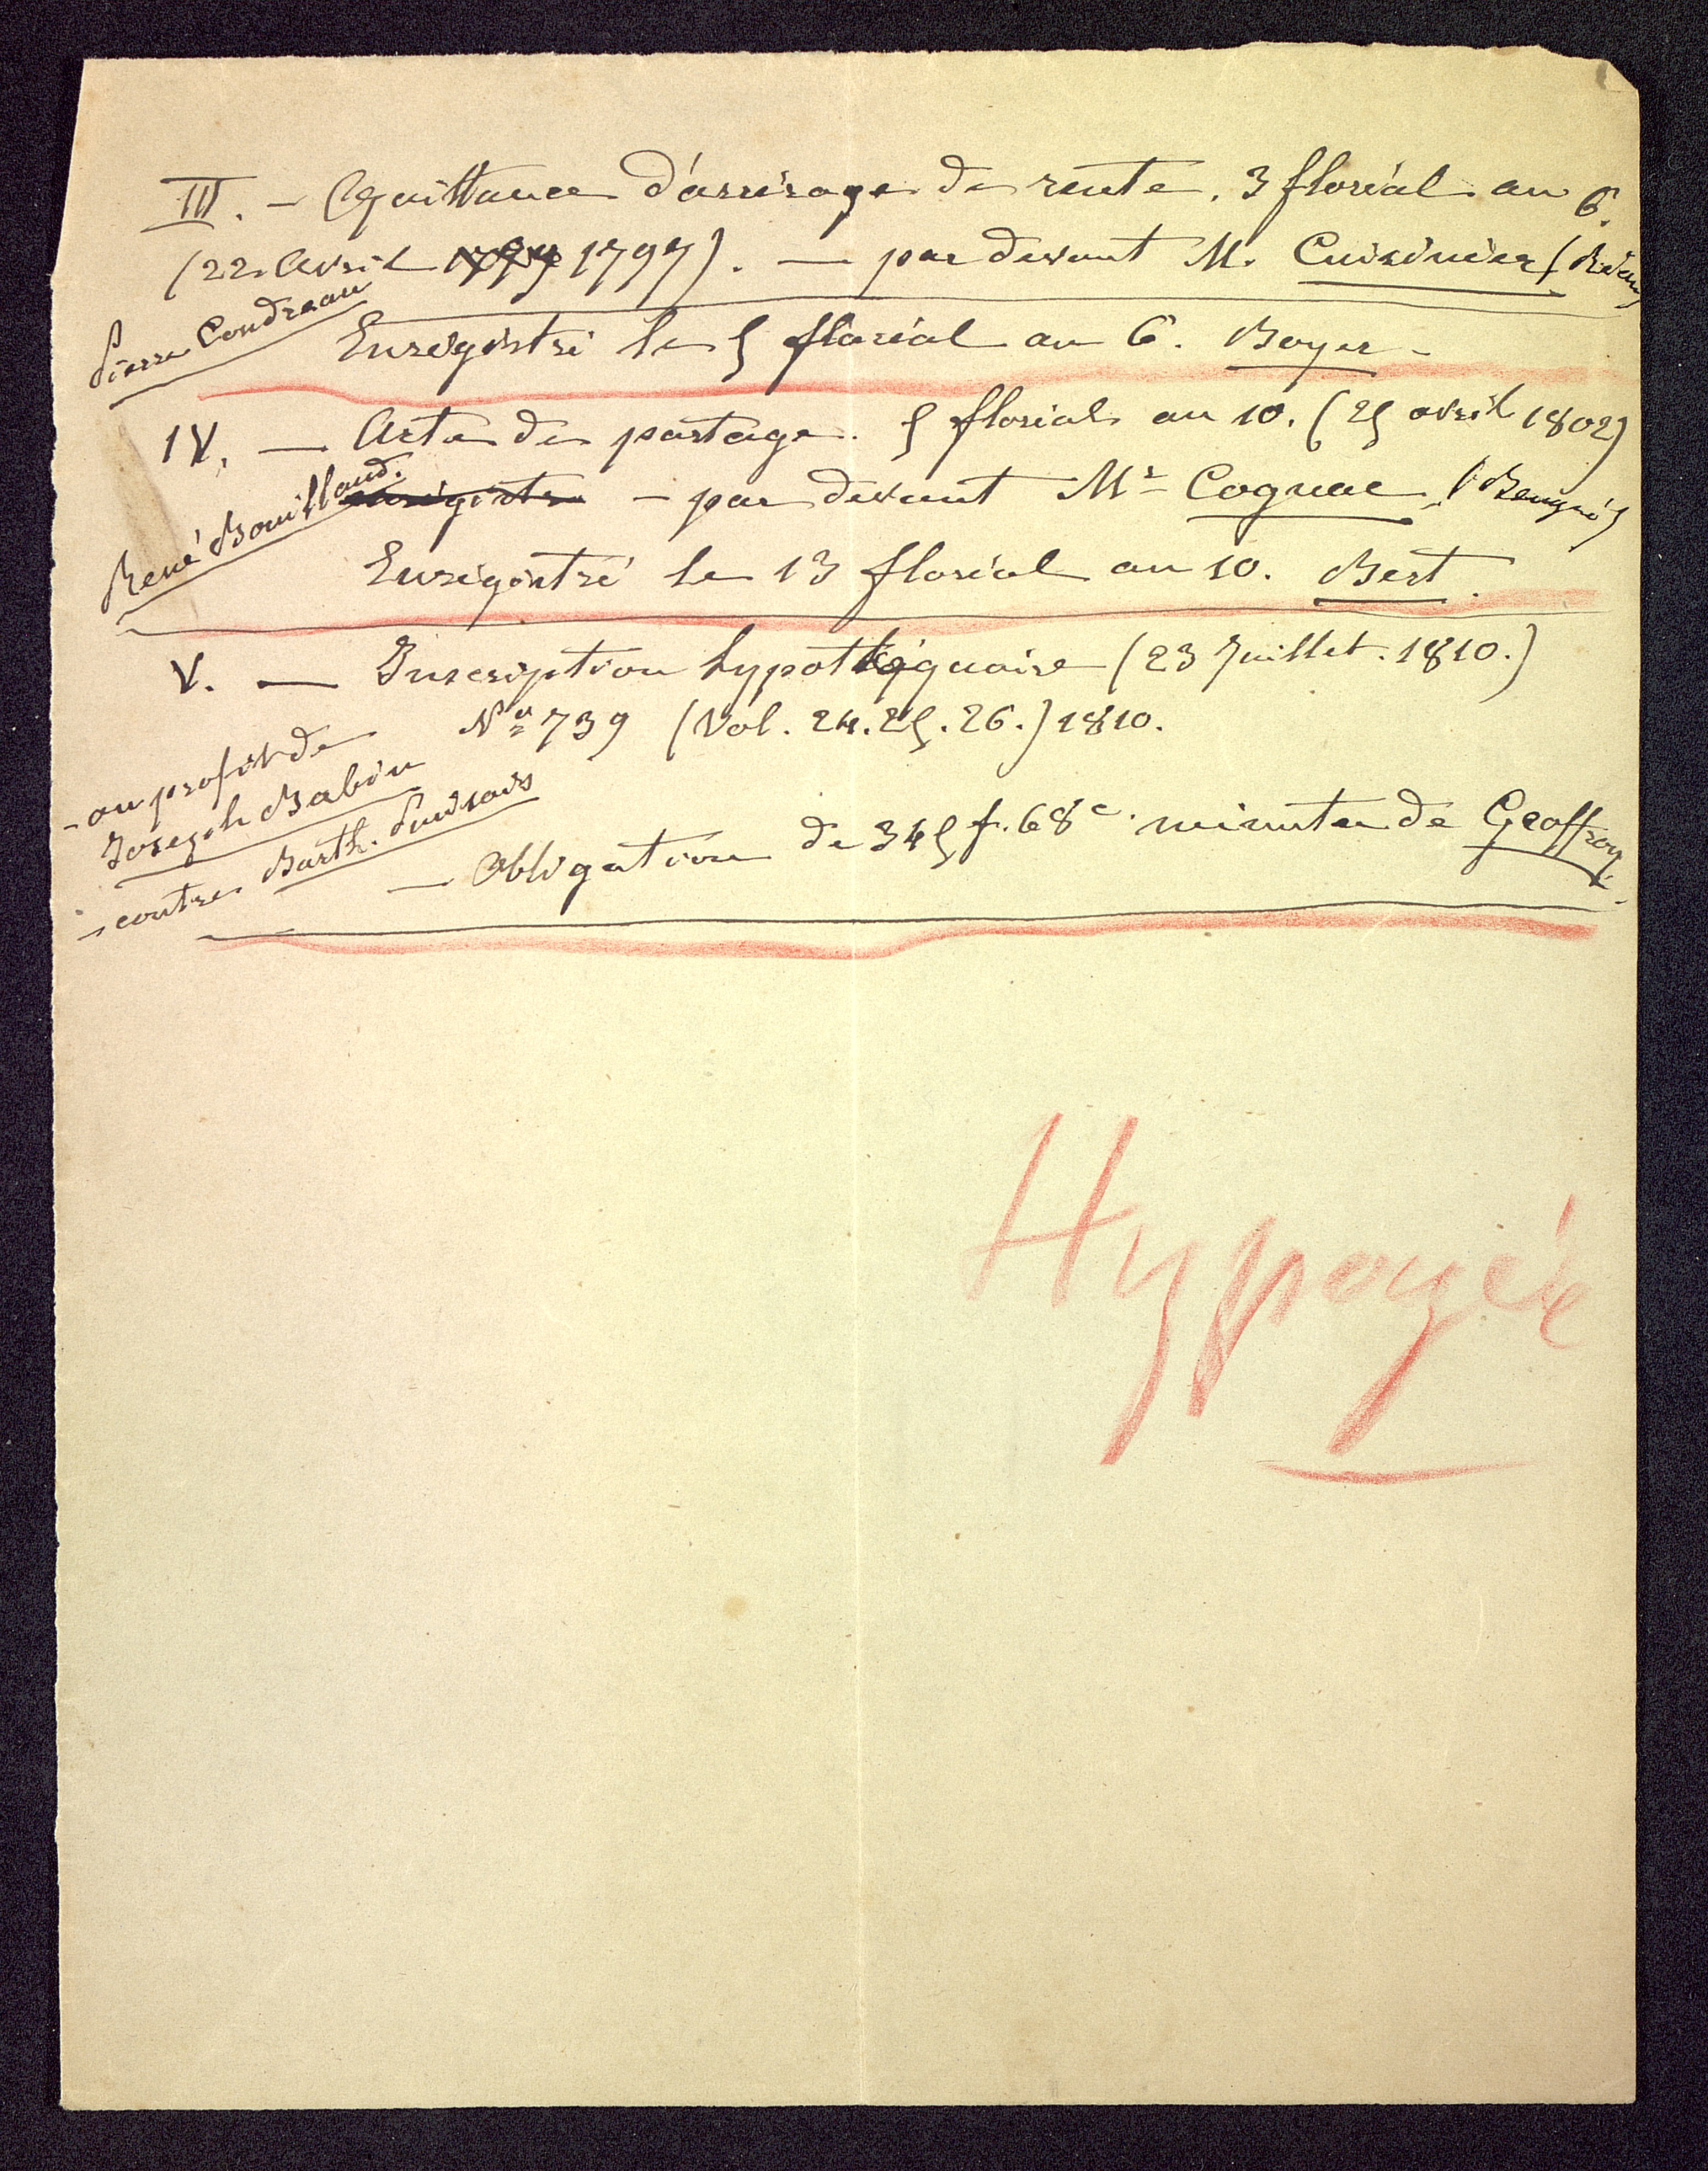 III. — Quittance d'arrérage de rente. 3 floréal an 6.
(22 Avril 1797). — par devant M. Cuisinier
Pierre Coudreau
Enregistré le 5 floréal an 6. Boyer —
IV. — Acte de partage. 5 floréal an 10. (25 avril 1802)
René Bouillaud.
enregistre — par devant Mr Cognac (Beugné)
Enregistré le 13 floréal an 10. Bert.
V. — Inscription hypothéquaire (23 Juillet. 1810.)
No 739 (Vol. 24. 25. 26.) 1810.
- au profit de
Joseph Babin
- contre Barth.
— Obligation de 345 f. 68 c. minute de Geoffroy.
Hypogée